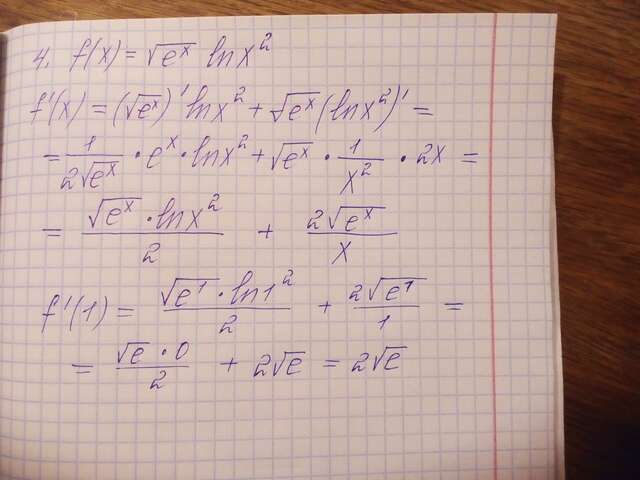 4. f(x) = √eˣ ln x²
f'(x) = (√eˣ)' ln x² + √eˣ (ln x²)' =
= 1/(2√eˣ) · eˣ · ln x² + √eˣ · 1/x² · 2x =
= (√eˣ · ln x²)/2 + (2√eˣ)/x
f'(1) = (√e¹ · ln 1²)/2 + (2√e¹)/1 =
= (√e · 0)/2 + 2√e = 2√e